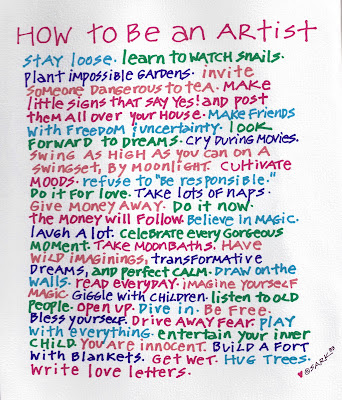 How to Be an Artist
stay loose. learn to watch snails.
plant impossible gardens. invite
someone dangerous to tea. make
little signs that say yes! and post
them all over your house. make friends
with freedom & uncertainty. look
forward to dreams. cry during movies.
swing as high as you can on a
swingset, by moonlight. cultivate
moods. refuse to "be responsible."
do it for love. take lots of naps.
give money away. do it now.
the money will follow. believe in magic.
laugh a lot. celebrate every gorgeous
moment. take moonbaths. have
wild imaginings, transformative
dreams, and perfect calm. draw on the
walls. read everyday. imagine yourself
magic. giggle with children. listen to old
people. open up. dive in. be free.
bless yourself. drive away fear. play
with everything. entertain your inner
child. you are innocent. build a fort
with blankets. get wet. hug trees.
write love letters.
©SARK